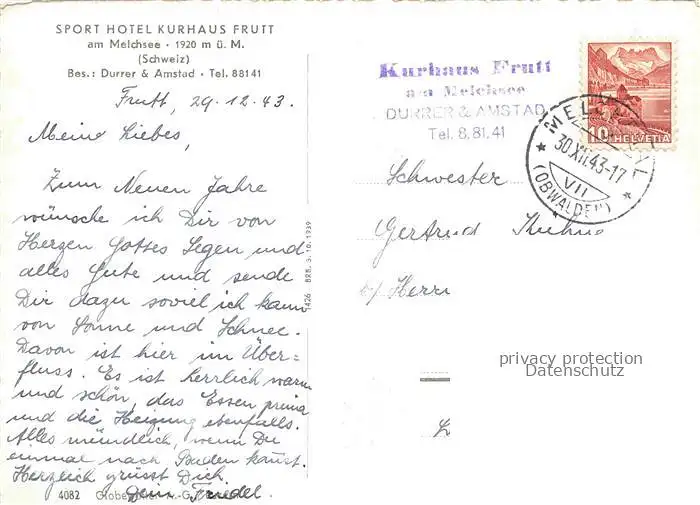 SPORT HOTEL KURHAUS FRUTT
am Melchsee · 1920 m ü. M.
(Schweiz)
Bes.: Durrer & Amstad · Tel. 88141
Frutt, 29.12.43.
Meine Liebes,
Zum Neuen Jahre
wünsche ich Dir von
Herzen Gottes Segen und
alles Gute und sende
Dir dazu soviel ich kann
von Sonne und Schnee.
Davon ist hier im Über=
fluss. Es ist herrlich warm
und schön, das Essen prima
und die Heizung ebenfalls.
Alles mündlich, wenn Du
einmal nach Baden kommst.
Herzlich grüsst Dich
Dein Friedel.
4082
1426 BRB. 3.10.1939
Kurhaus Frutt
am Melchsee
DURRER & AMSTAD
Tel. 8.81.41
10 HELVETIA
30.XII.43-17
VII
(OBWALDEN)
Schwester
Gertrud Kuhne
b/ Herrn
privacy protection
Datenschutz